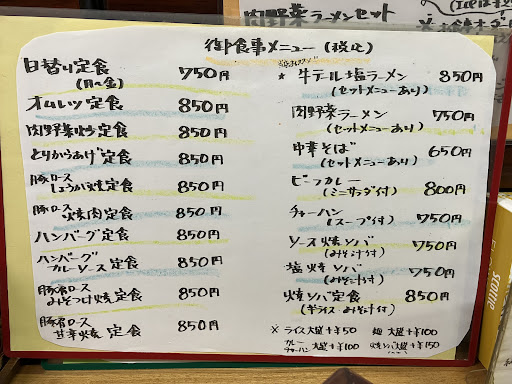 肉野菜ラーメンセット
御食事メニュー (税込)
日替り定食 750円
(月〜金)
オムレツ定食 850円
肉野菜炒め定食 850円
とりからあげ定食 850円
豚ロース
しょうが焼定食 850円
豚ロース
焼肉定食 850円
ハンバーグ定食 850円
ハンバーグ
カレーソース定食 850円
豚肩ロース
みそつけ焼定食 850円
豚肩ロース
甘辛焼定食 850円
★ 牛テール塩ラーメン 850円
(セットメニューあり)
肉野菜ラーメン 750円
(セットメニューあり)
中華そば 650円
(セットメニューあり)
ビーフカレー 800円
(ミニサラダ付)
チャーハン 750円
(スープ付)
ソース焼ソバ 750円
(みそ汁付)
塩焼ソバ 750円
(みそ汁付)
焼ソバ定食 850円
(半ライス・みそ汁付)
※ ライス大盛+¥50 麺 大盛+¥100
カレー
チャーハン 大盛+¥100 焼ソバ大盛+¥150